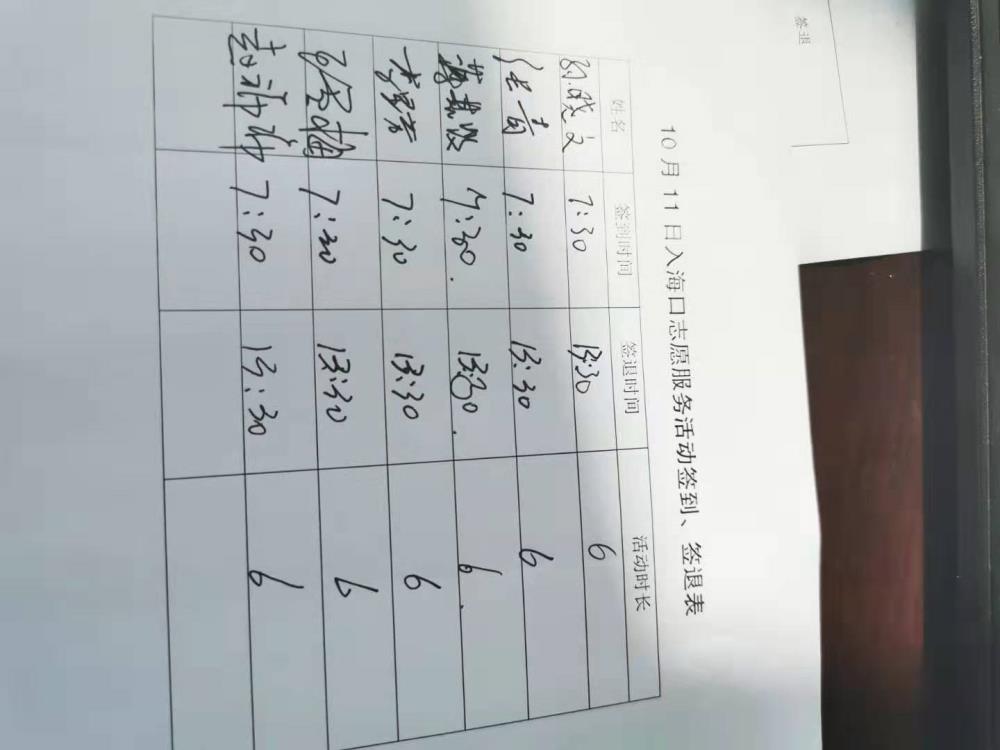 签退
10月11日入海口志愿服务活动签到、签退表
姓名 签到时间 签退时间 活动时长
孙晓文 7:30 13:30 6
7:30 13:30 6
7:30. 13:30. 6.
7:30 13:30 6
7:30 13:30 6
7:30 13:30 6